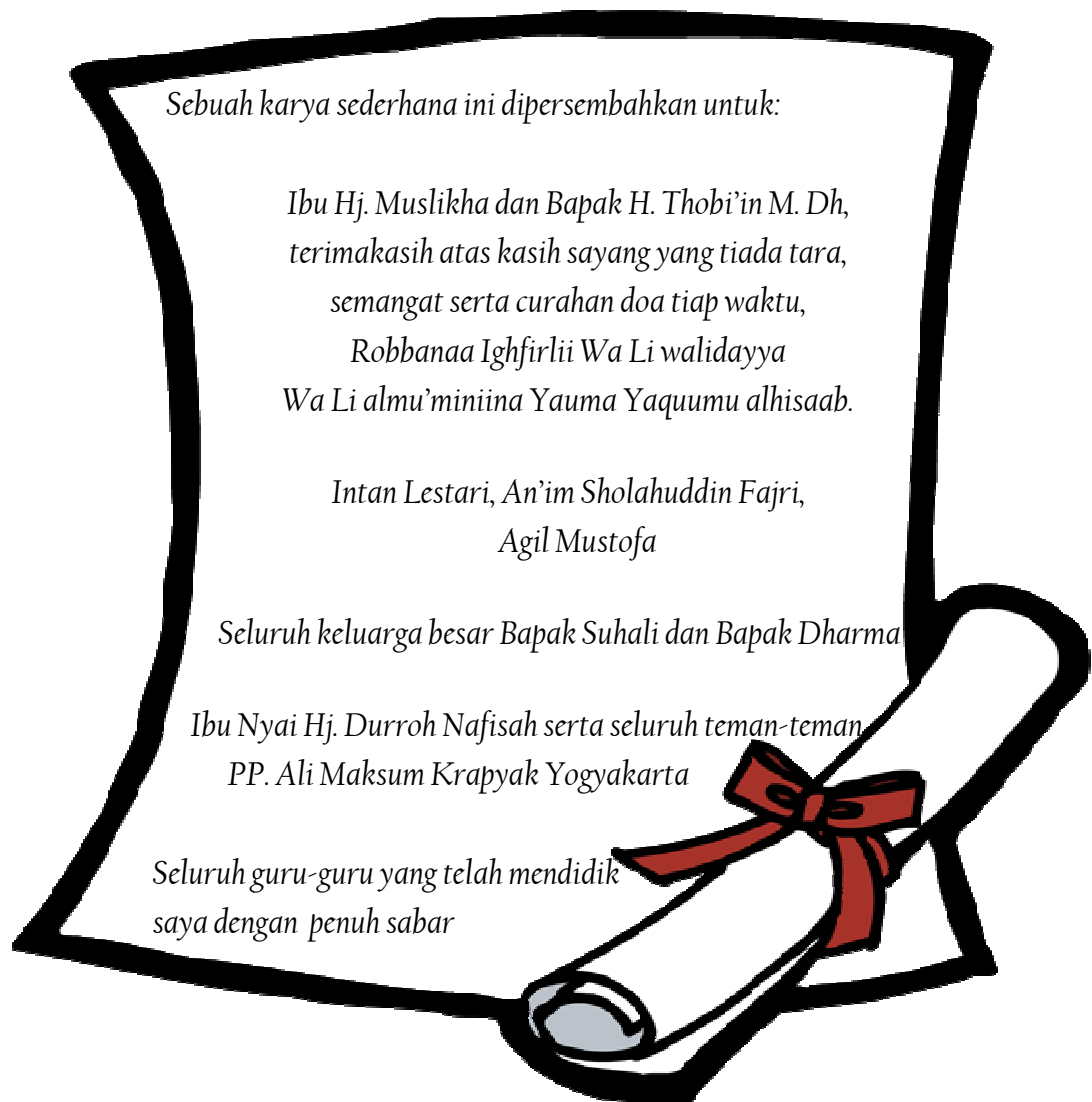 Sebuah karya sederhana ini dipersembahkan untuk:
Ibu Hj. Muslikha dan Bapak H. Thobi’in M. Dh,
terimakasih atas kasih sayang yang tiada tara,
semangat serta curahan doa tiap waktu,
Robbanaa Ighfirlii Wa Li walidayya
Wa Li almu’miniina Yauma Yaquumu alhisaab.
Intan Lestari, An’im Sholahuddin Fajri,
Agil Mustofa
Seluruh keluarga besar Bapak Suhali dan Bapak Dharma
Ibu Nyai Hj. Durroh Nafisah serta seluruh teman-teman
PP. Ali Maksum Krapyak Yogyakarta
Seluruh guru-guru yang telah mendidik
saya dengan penuh sabar